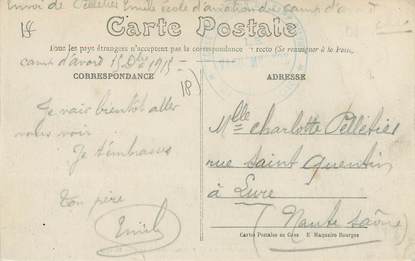 Envoi de Pelletier Emile école d'aviation du camp d'a
18
Carte Postale
Tous les pays étrangers n'acceptent pas la correspondance au recto (Se renseigner à la Poste)
camp d'avord 15 Dbre 1915
CORRESPONDANCE
ADRESSE
18)
Je vais bientôt aller
vous voir
Je t'embrasse
Ton père
Emile
Melle Charlotte Pelletier
rue Saint Quentin
à Lure
(Haute Saône)
Cartes Postales en Gros E. Maquaire Bourges